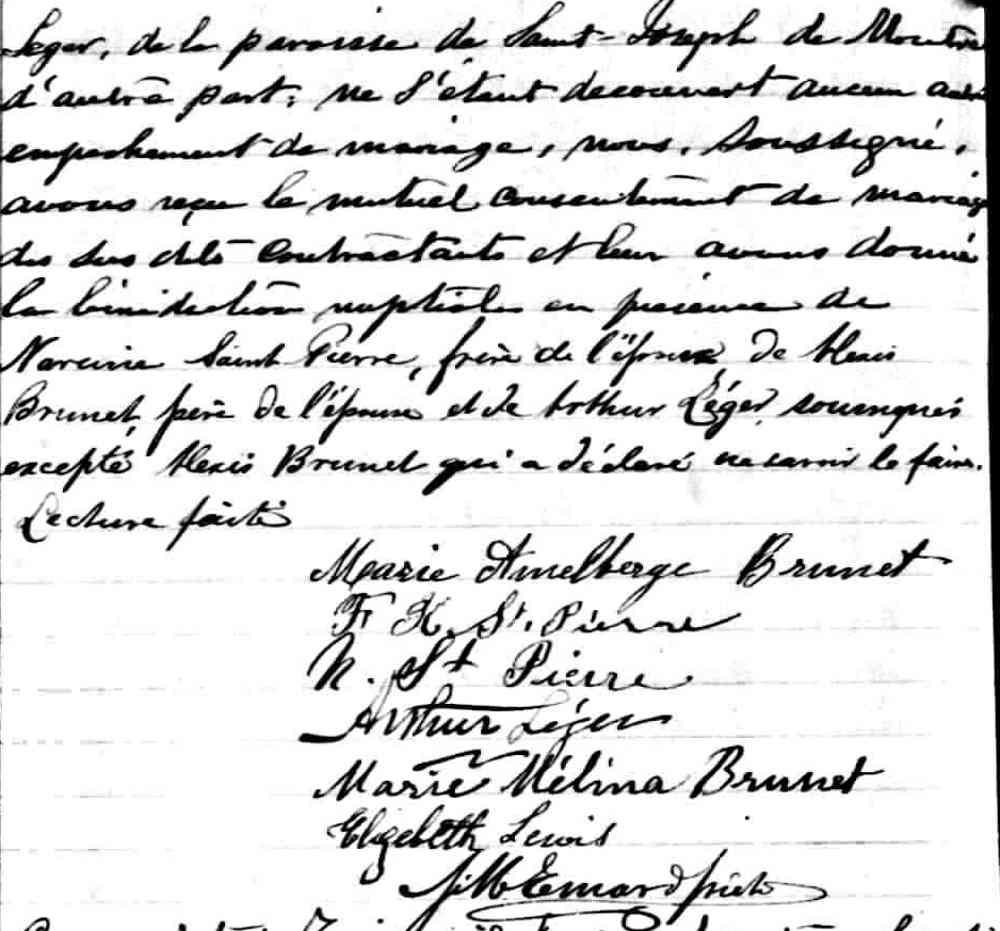 Leger, de la paroisse de Saint-Joseph de Montré
d'autre part; ne s'étant decouvert aucun autre
empechement de mariage, nous, soussigné,
avons reçu le mutuel consentement de mariage
des sus dits contractants et leur avons donné
la bénédiction nuptiale en présence de
Narcisse Saint Pierre, frère de l'époux, de Alexis
Brunet, père de l'épouse et de Arthur Léger, soussignés
excepté Alexis Brunet qui a déclaré ne savoir le faire.
Lecture faite
Marie Amelberge Brunet
F X. St. Pierre
N. St Pierre
Arthur Léger
Marie Mélina Brunet
Elizebeth Lewis
Emard ptre